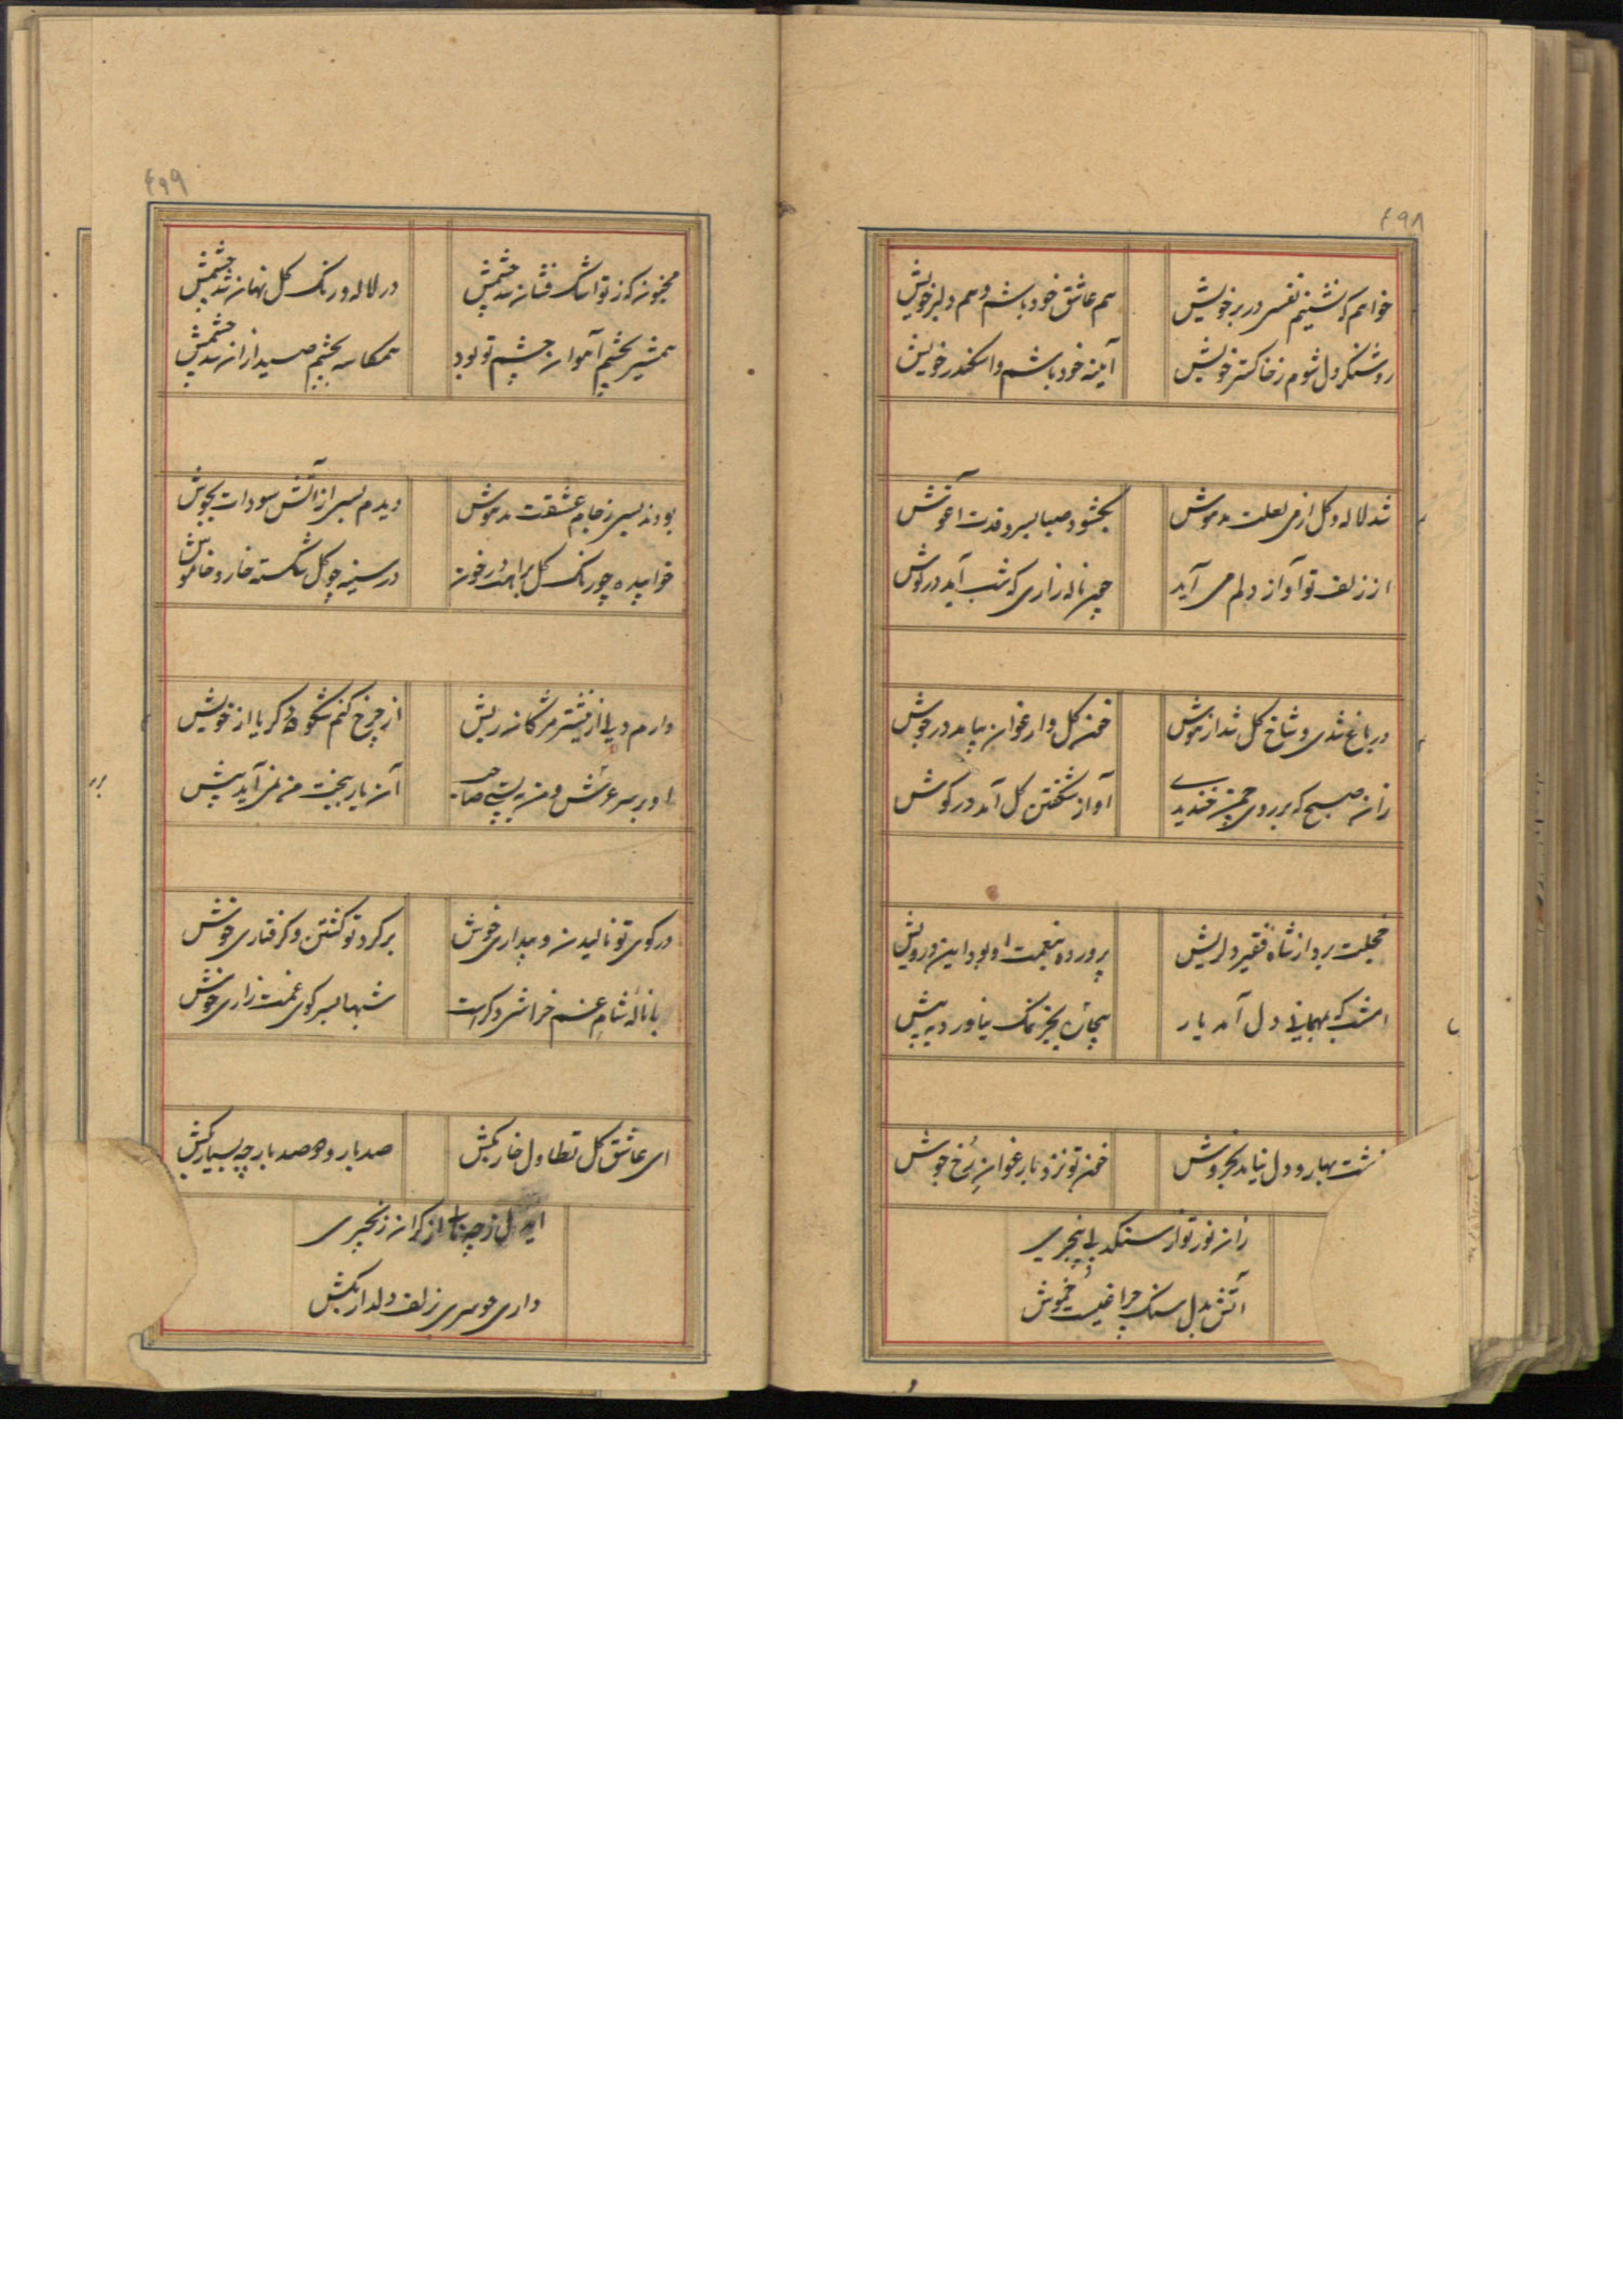 ۴۹۸
خواهم که نشینم نفسی در بر خویش
هم عاشق خود باشم و هم دلبر خویش
روشنکر دل شوم ز خاکستر خویش
آینه خود باشم و اسکندر خویش
شد لاله و کل از می لعلت مدهوش
بکشود صبا بسرو قدت آغوش
از زلف تو آواز دلم می آید
چون ناله زاری که شب آید در کوش
در باغ شدی و شاخ کل شد از هوش
خون کل و ارغوان بیامد در جوش
زان صبح که بر روی چمن خندیدی
آواز شکفتن کل آمد در کوش
خجلت برد از شاه فقیر دلریش
پرورده بنعمت او بود این درویش
امشب که بمهمانی دل آمد یار
بیچاره بجز نمک نیاورد به پیش
بهار و دل نیامد بخروش
خون تو نزد بارغوان رخ جوش
زان نور تو از سنکدلی بیخبری
آتش بدل سنک چراغیست خموش
۴۹۹
مجنون که ز تو اشک فشان شد چشمش
در لاله و رنک کل نهان شد چشمش
همشیر بچشم آهوان چشم تو بود
همکاسه بچشم صید ازان شد چشمش
بودند بسی ز جام عشقت مدهوش
دیدم بسی از آتش سودات بجوش
خوابیده چو رنک کل براهت در خون
در سینه چو کل شکسته خار و خاموش
دارم دلی از نیشتر مژکان ریش
از چرخ کنم شکوه دکر یا از خویش
او بر سر عرش و من به پستی صاحب
آن یار ببخت من نمی آید پیش
در کوی تو نالیدن و بیداری خوش
بر کرد تو کشتن و کرفتاری خوش
با ناله شام غم خراشی دکر است
شبها بسر کوی غمت زاری خوش
ای عاشق کل تطاول خار بکش
صد بار و صد بار چه بسیار بکش
ای دل ز چه از کران زنجیری
داری هوسی زلف دلدار بکش